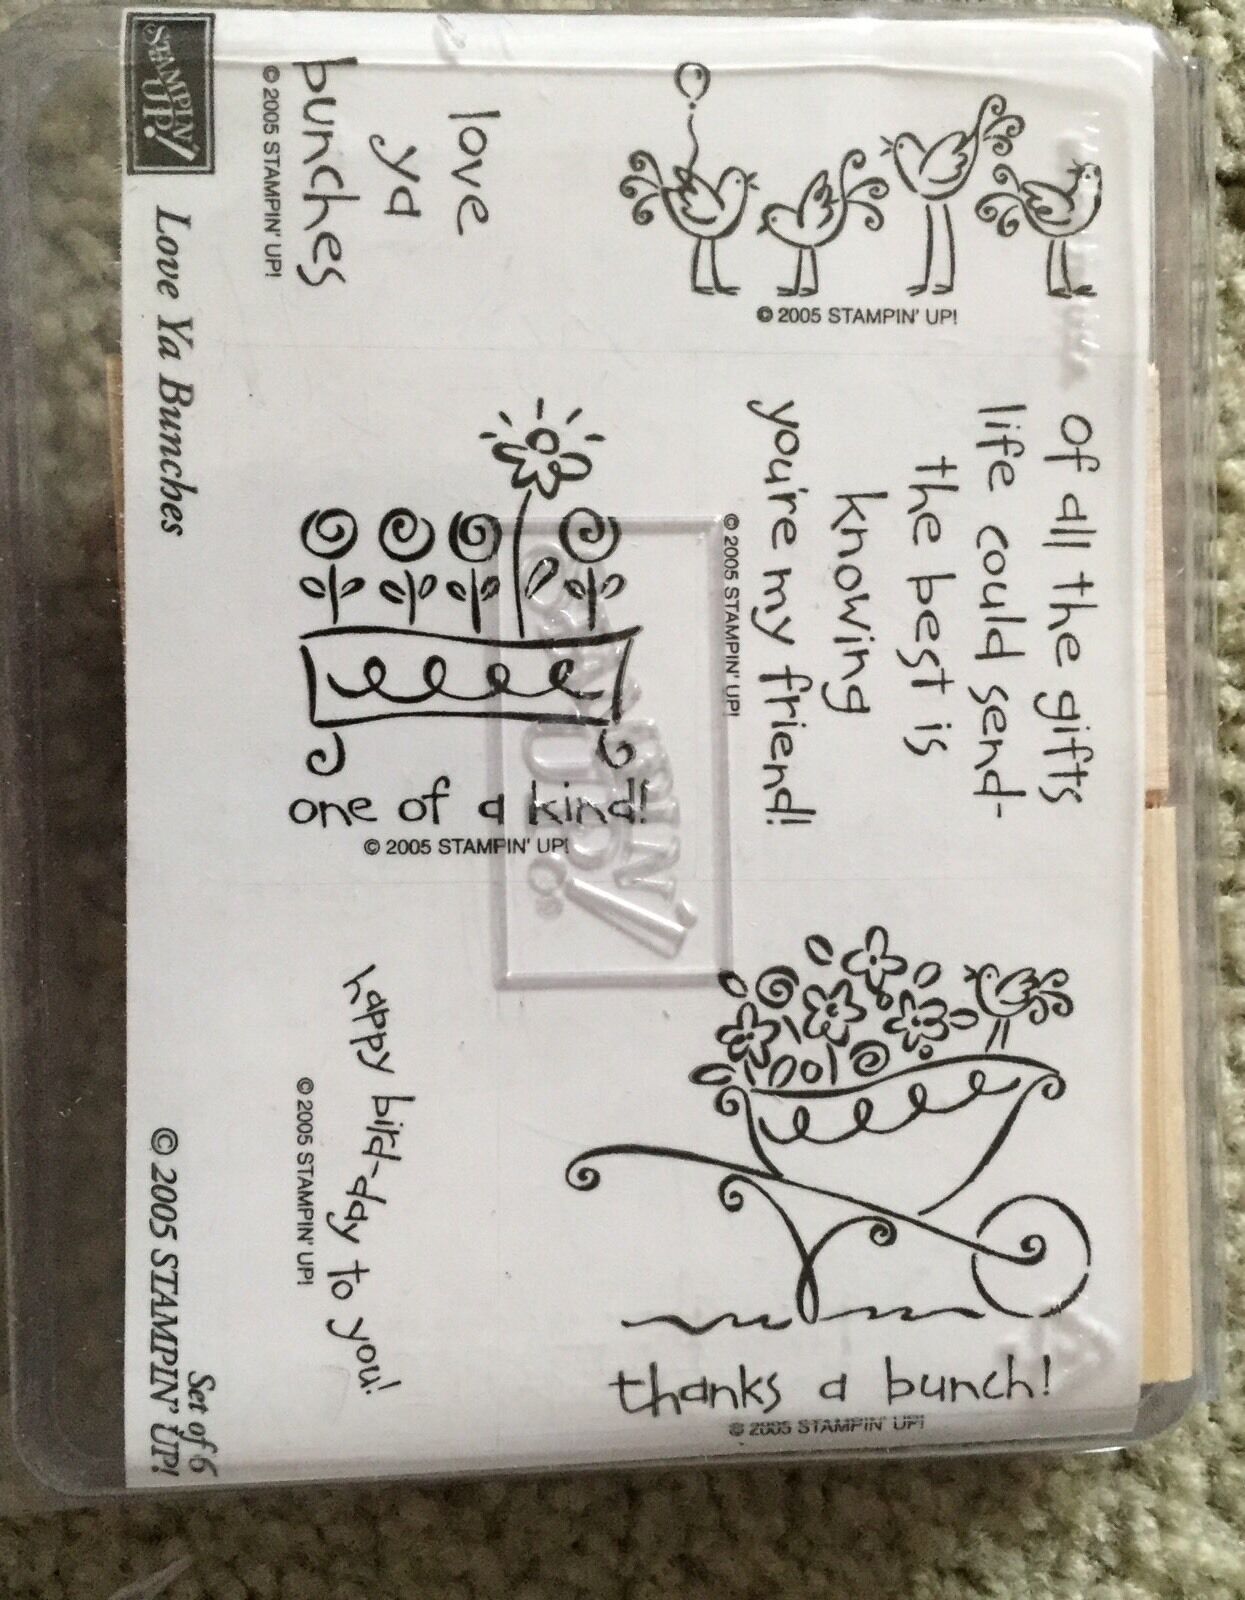 STAMPIN'
UP!
Love Ya Bunches
Set of 6
© 2005 STAMPIN' UP!
love
ya
bunches
© 2005 STAMPIN' UP!
© 2005 STAMPIN' UP!
of all the gifts
life could send-
the best is
knowing
you're my friend!
© 2005 STAMPIN' UP!
one of a kind!
© 2005 STAMPIN' UP!
STAMPIN'
UP!®
happy bird-day to you!
© 2005 STAMPIN' UP!
thanks a bunch!
© 2005 STAMPIN' UP!